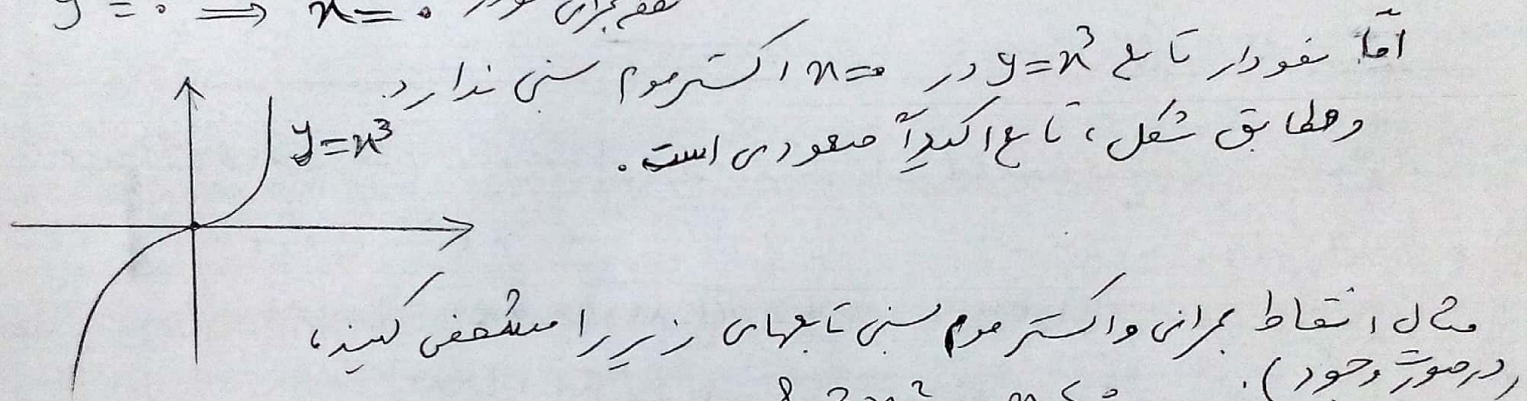 y = 0 ⟹ x = 0
اما نمودار تابع y=x³ در x=0 اکسترموم نسبی ندارد.
و مطابق شکل، تابع اکیداً صعودی است.
y=x³
مثال: نقاط بحرانی و اکسترموم نسبی تابعهای زیر را مشخص کنید،
(در صورت وجود).